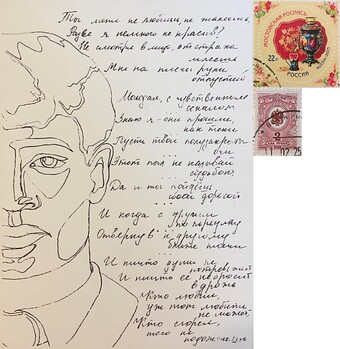 Ты меня не любишь, не жалеешь,
Разве я немного не красив?
Не смотря в лицо от страсти
млеешь
Мне на плечи руки
опустив
с чувственным
оскалом
Знаю я - они прошли,
как тени
Пусть твои полузакрыты
очи
Этот пыл не называй
судьбою
Да и ты пойдёшь
своей дорогой
И когда с другим
по переулку
ближе плечи
И ничто души не
потревожит
И ничто её не бросит
в дрожь
Кто любил,
уж тот любить
не может
Кто сгорел,
того не
подожжешь
РОСПИСЬ
22
РОССИЯ
2
11 02 25